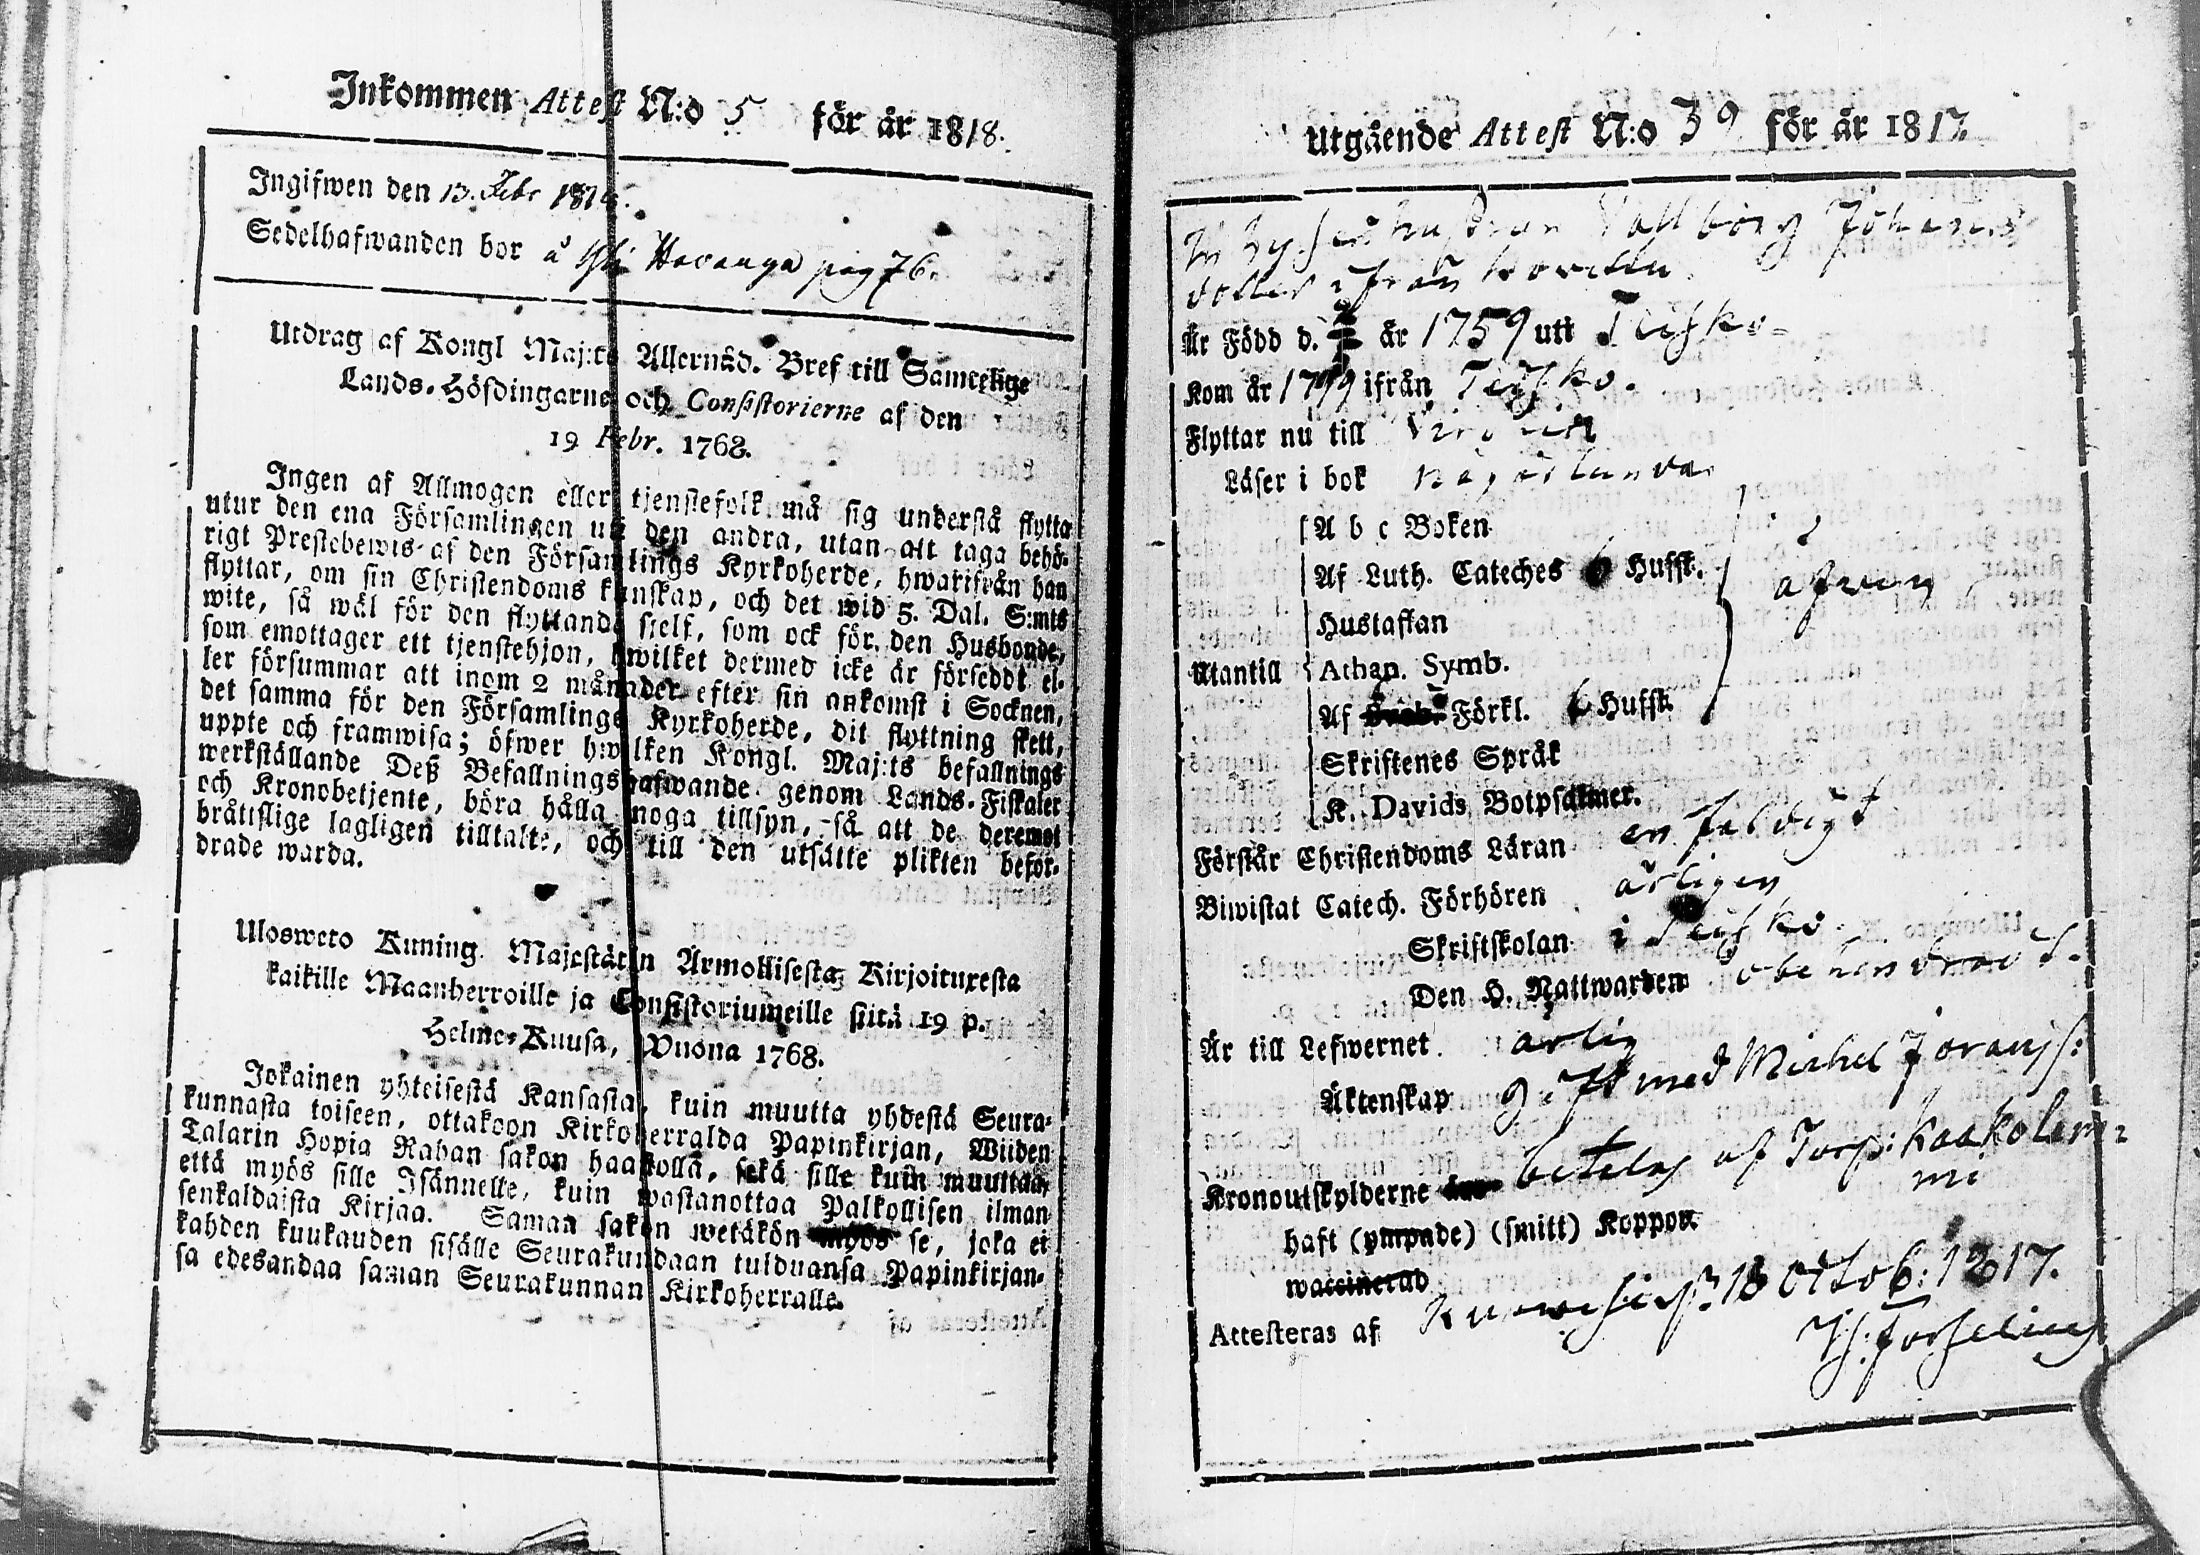 Inkommen Attest N:o 5 för år 1818.
Ingifwen den 13. Febr 1818.
Sedelhafwanden bor å Havanga pag 76.
Utdrag af Kongl Maj:ts Allernåd. Bref till Samtelige
Lands-Höfdingarne och Consistorierne af den
19 Febr. 1768.
Ingen af Allmogen eller tjenstefolk må sig understå flytta
utur den ena Församlingen uti den andra, utan att taga behö-
rigt Prestebewis af den Församlings Kyrkoherde, hwarifrån han
flyttar, om sin Christendoms kunskap, och det wid 5. Dal. S:mts
wite, så wäl för den flyttande sielf, som ock för den Husbonde,
som emottager ett tjenstehjon, hwilket dermed icke är försedt el-
ler försummar att inom 2 månader efter sin ankomst i Socknen,
det samma för den Församlings Kyrkoherde, dit flyttning skett,
uppte och framwisa; öfwer hwilken Kongl. Maj:ts befallnings
werkställande Deß Befallningshafwande genom Lands-Fiskaler
och Kronobetjente, böra hålla noga tillsyn, så att de deremot
bråttslige lagligen tilltalte, och till den utsätte plikten beför-
drade warda.
Ulosweto Kuning. Majestätin Armollisesta Kirjoituxesta
kaikille Maanherroille ja Consistoriumeille siitä 19 p.
Helme-Kuusa, Wuona 1768.
Jokainen yhteisestä Kansasta, kuin muutta yhdestä Seura-
kunnasta toiseen, ottakoon Kirkoherralda Papinkirjan, Wiiden
Talarin Hopia Rahan sakon haastolla, sekä sille kuin muuttaa,
että myös sille Isännelle, kuin wastanottaa Palkollisen ilman
senkaldaista Kirjaa. Saman sakon wetäkön myös se, joka ei
kahden kuukauden sisälle Seurakundaan tulduansa Papinkirjan-
sa edesandaa saman Seurakunnan Kirkoherralle.
Utgående Attest N:o 39 för år 1817.
hustrun Vallborg Johans
dotter ifrån
Är Född d. år 1759 uti Teisko
Kom år 1799 ifrån Teisko.
Flyttar nu till
Läser i bok någorlunda
A b c Boken
Af Luth. Cateches 6 Hufst.
äfven
Hustaflan
Utantill Athan. Symb.
Af Förkl. 6 Hufst.
Skriftenes Språk
K. Davids Botpsalmer.
Förstår Christendoms Läran enfaldigt
Biwistat Catech. Förhören årligen
Skriftskolan i Teisko.
Den H. Nattwarden obehindrad.
Är till Lefwernet ärlig
Äktenskap gift med Michel Joransf:
Kronoutskylderne betelas af Torp: Kaakolam:
mi
haft (ympade) (smitt) Koppor
waccinerad
Attesteras af 18 Octob: 1817.
Forselius